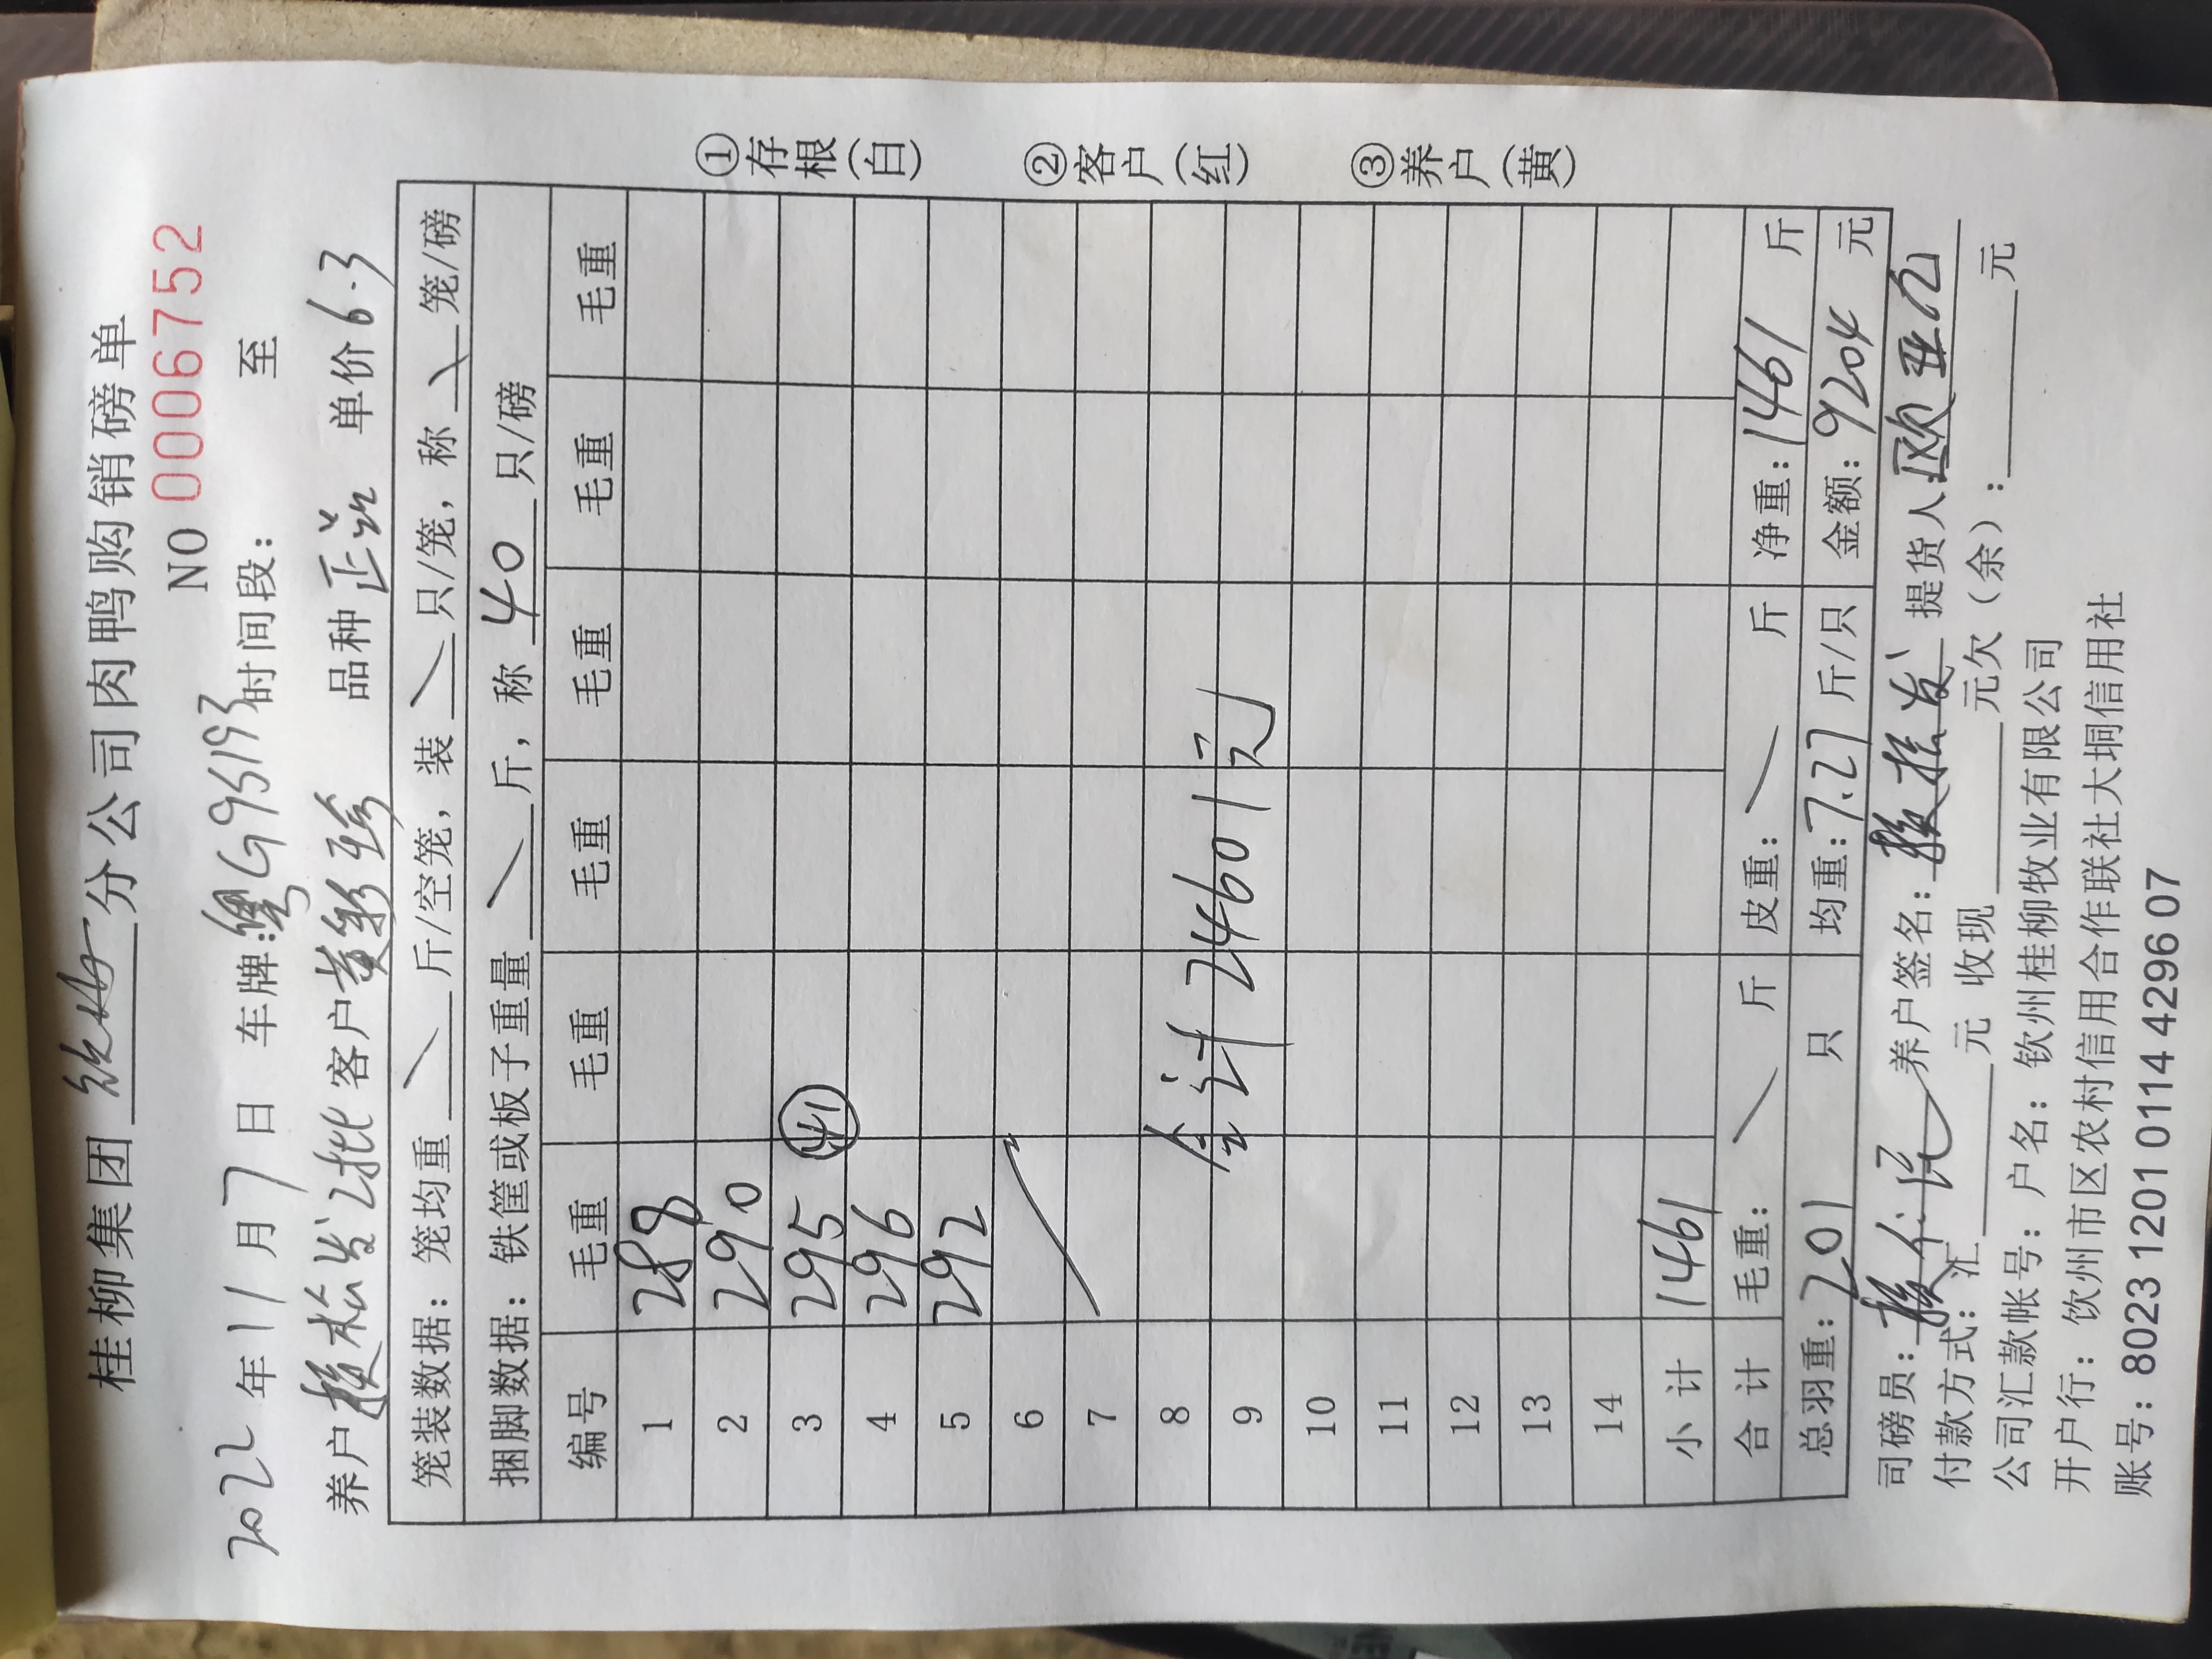 桂柳集团 钦州 分公司肉鸭购销磅单
NO 0006752
2022年11月7日 车牌:粤G95193 时间段: 至
养户 松发2批 客户 黄彩珍 品种 正品 单价 6.3
笼装数据:笼均重 \ 斤/空笼,装 \ 只/笼,称 \ 笼/磅
捆脚数据:铁筐或板子重量 \ 斤,称 40 只/磅
编号 毛重 毛重 毛重 毛重 毛重 毛重
1 288
2 290
3 295 ㊶
4 296
5 292
6
7
8
9
合计24601元
10
11
12
13
14
小计 1461
合计 毛重: / 斤 皮重: / 斤 净重:1461 斤
总羽重:201 只 均重:7.27 斤/只 金额:9204 元
司磅员: 养户签名: 松发 提货人:
付款方式:汇 元 收现 元欠(余): 元
公司汇款帐号:户名:钦州桂柳牧业有限公司
开户行:饮州市区农村信用合作联社大垌信用社
账号:8023 1201 0114 4296 07
①存根(白)
②客户(红)
③养户(黄)